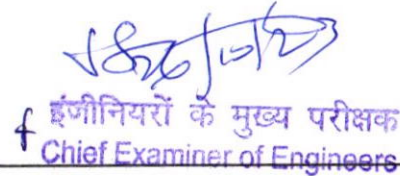 इंजीनियरों के मुख्य परीक्षक
Chief Examiner of Engineers